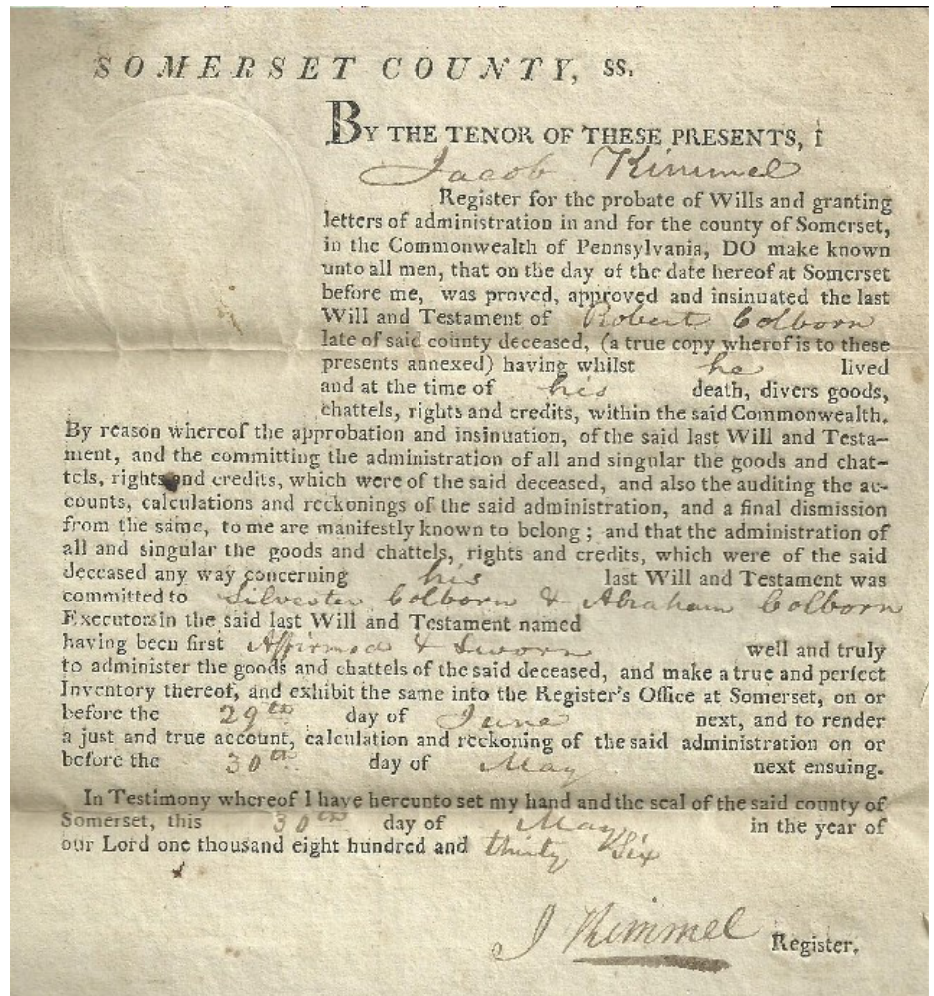 SOMERSET COUNTY, SS.
BY THE TENOR OF THESE PRESENTS, I
Jacob Kimmel
Register for the probate of Wills and granting
letters of administration in and for the county of Somerset,
in the Commonwealth of Pennsylvania, DO make known
unto all men, that on the day of the date hereof at Somerset
before me, was proved, approved and insinuated the last
Will and Testament of Robert Colborn
late of said county deceased, (a true copy wherof is to these
presents annexed) having whilst he lived
and at the time of his death, divers goods,
chattels, rights and credits, within the said Commonwealth.
By reason whereof the approbation and insinuation, of the said last Will and Testa-
ment, and the committing the administration of all and singular the goods and chat-
tels, rights and credits, which were of the said deceased, and also the auditing the ac-
counts, calculations and reckonings of the said administration, and a final dismission
from the same, to me are manifestly known to belong; and that the administration of
all and singular the goods and chattels, rights and credits, which were of the said
deceased any way concerning his last Will and Testament was
committed to Silvester Colborn & Abraham Colborn
Executors in the said last Will and Testament named
having been first Affirmed & Sworn well and truly
to administer the goods and chattels of the said deceased, and make a true and perfect
Inventory thereof, and exhibit the same into the Register's Office at Somerset, on or
before the 29th day of June next, and to render
a just and true account, calculation and reckoning of the said administration on or
before the 30th day of May next ensuing.
In Testimony whereof I have hereunto set my hand and the seal of the said county of
Somerset, this 30th day of May in the year of
our Lord one thousand eight hundred and thirty Six
J Kimmel Register.